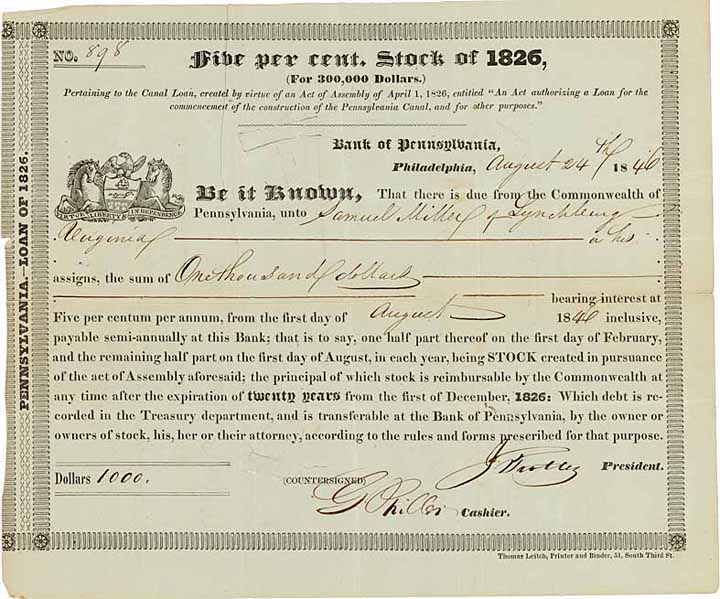 NO. 898
Five per cent. Stock of 1826,
(For 300,000 Dollars.)
Pertaining to the Canal Loan, created by virtue of an Act of Assembly of April 1, 1826, entitled "An Act authorizing a Loan for the
commencement of the construction of the Pennsylvania Canal, and for other purposes."
Bank of Pennsylvania,
Philadelphia, August 24th 1846
VIRTUE LIBERTY & INDEPENDENCE
Be it Known, That there is due from the Commonwealth of
Pennsylvania, unto Samuel Miller of Lynchburg
Virginia or his
assigns, the sum of One thousand dollars
bearing interest at
Five per centum per annum, from the first day of August 1846 inclusive,
payable semi-annually at this Bank; that is to say, one half part thereof on the first day of February,
and the remaining half part on the first day of August, in each year, being STOCK created in pursuance
of the act of Assembly aforesaid; the principal of which stock is reimbursable by the Commonwealth at
any time after the expiration of twenty years from the first of December, 1826: Which debt is re-
corded in the Treasury department, and is transferable at the Bank of Pennsylvania, by the owner or
owners of stock, his, her or their attorney, according to the rules and forms prescribed for that purpose.
President.
Dollars 1000.
(COUNTERSIGNED)
Cashier.
Thomas Leitch, Printer and Binder, 51, South Third St.
PENNSYLVANIA.—LOAN OF 1826.